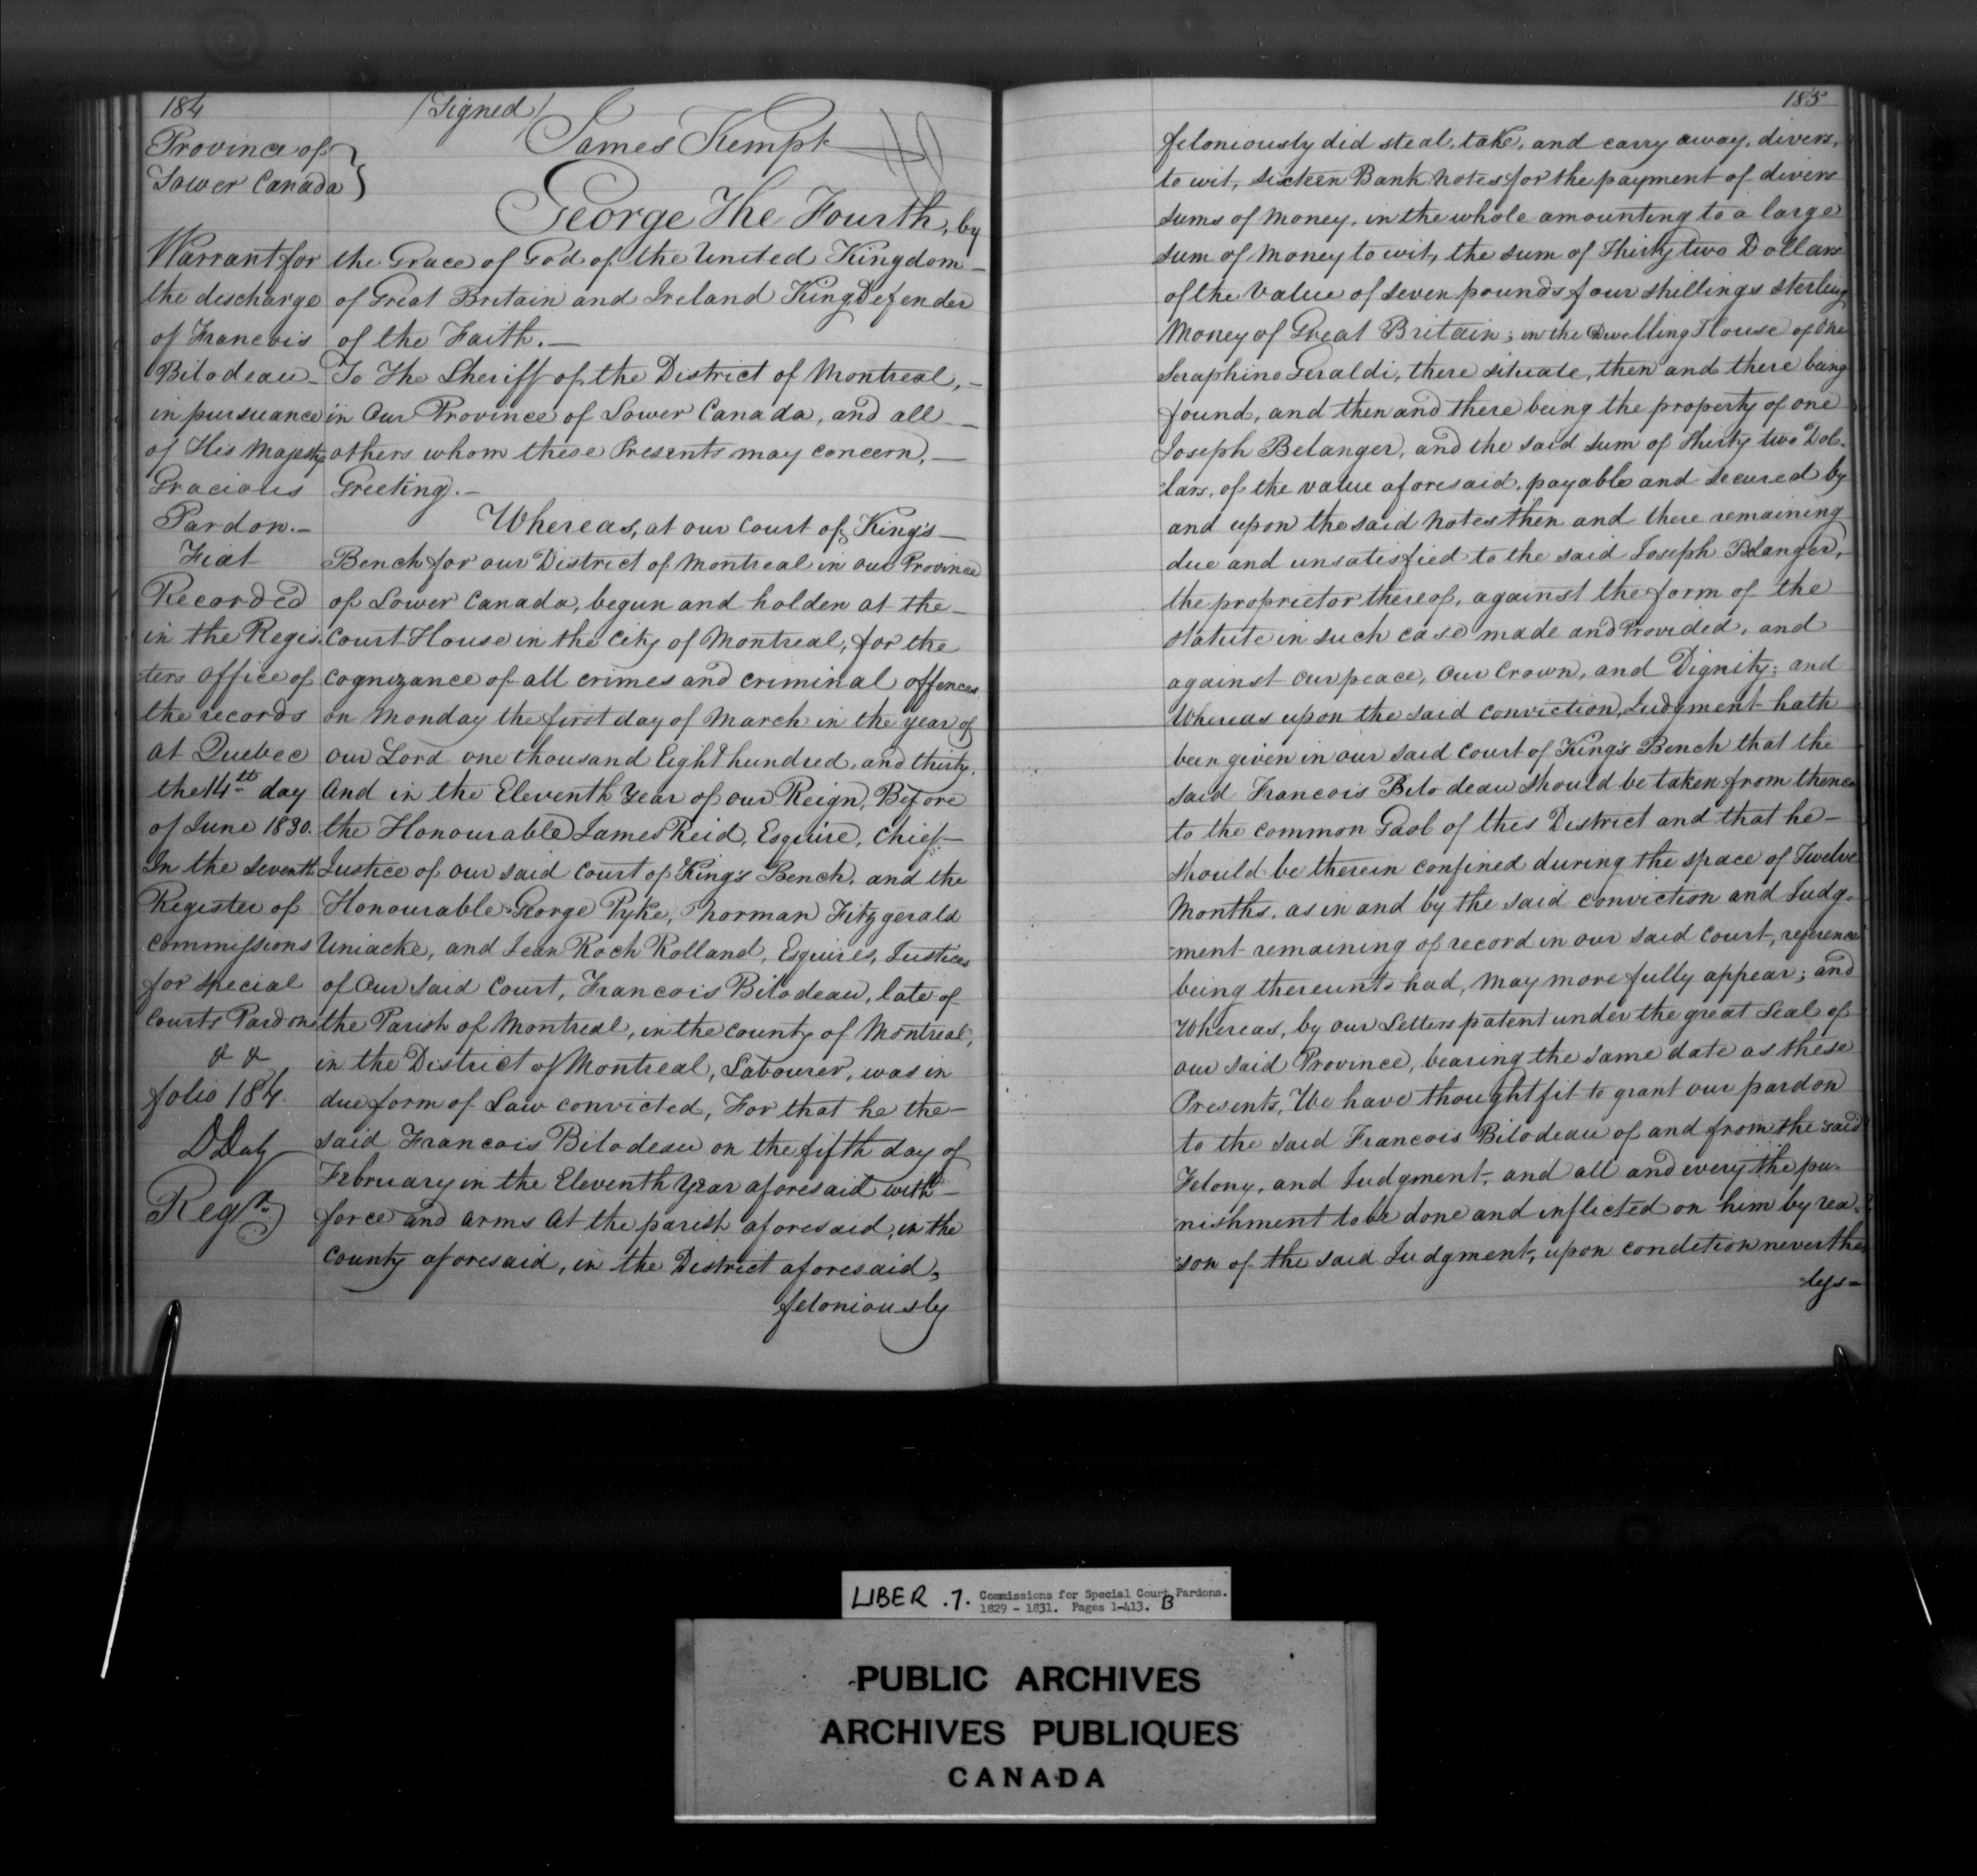 184
(Signed)
James Kempt
Province of
Lower Canada
Warrant for
the discharge
of Francois
Bilodeau
in pursuance
of His Majestys
Gracious
Pardon.-
Fiat
Recorded
in the Regis
ters office of
the records
at Quebec
the 14th day
of June 1830.
In the seventh
Register of
Commissions
for special
Courts Pardons
& &
folio 184.
D Daly
Regr.
George The Fourth, by
the Grace of God of the United Kingdom -
of Great Britain and Ireland King Defender
of the Faith. -
To The Sheriff of the District of Montreal, -
in Our Province of Lower Canada, and all -
others whom these Presents may concern, -
Greeting. -
Whereas, at our Court of King's -
Bench for our District of Montreal in our Province
of Lower Canada, begun and holden at the -
Court House in the City of Montreal, for the
cognizance of all crimes and criminal offences
on Monday the first day of March in the year of
our Lord one thousand Eight hundred, and thirty,
And in the Eleventh Year of our Reign, Before
the Honourable James Reid, Esquire, Chief -
Justice of our said Court of King's Bench, and the
Honourable George Pyke, Norman Fitzgerald
Uniacke, and Jean Roch Rolland, Esquires, Justices
of Our said Court, Francois Bilodeau, late of
the Parish of Montreal, in the County of Montreal,
in the District of Montreal, Labourer, was in
due form of Law convicted, For that he the -
said Francois Bilodeau on the fifth day of
February in the Eleventh Year aforesaid with -
force and arms at the parish aforesaid, in the
County aforesaid, in the District aforesaid,
feloniously
185
feloniously did steal, take, and carry away, divers,
to wit, sixteen Bank notes for the payment of divers
sums of money, in the whole amounting to a large
sum of money to wit, the sum of Thirty two Dollars
of the value of seven pounds four shillings sterling
Money of Great Britain; in the Dwelling House of one
Seraphino Geraldi, there situate, then and there being
found, and then and there being the property of one
Joseph Belanger, and the said sum of Thirty two Dol-
lars, of the value aforesaid, payable and secured by
and upon the said notes then and there remaining
due and unsatisfied to the said Joseph Belanger,
the proprietor thereof, against the form of the
statute in such case made and Provided, and
against our peace, our Crown, and Dignity; and
Whereas upon the said conviction, Judgment hath
been given in our said Court of King's Bench that the
said Francois Bilodeau should be taken from thence
to the common Gaol of this District and that he -
should be therein confined during the space of Twelve
Months, as in and by the said conviction and Judg-
ment remaining of record in our said Court, reference
being thereunto had, may more fully appear; and
Whereas, by our Letters patent under the great Seal of
our said Province, bearing the same date as these
Presents, We have thought fit to grant our pardon
to the said Francois Bilodeau of and from the said
Felony, and Judgment, and all and every the pu-
nishment to be done and inflicted on him by rea-
son of the said Judgment, upon condition neverthe-
less -
LIBER .7. Commissions for Special Court Pardons.
1829 - 1831. Pages 1-413. B
PUBLIC ARCHIVES
ARCHIVES PUBLIQUES
CANADA